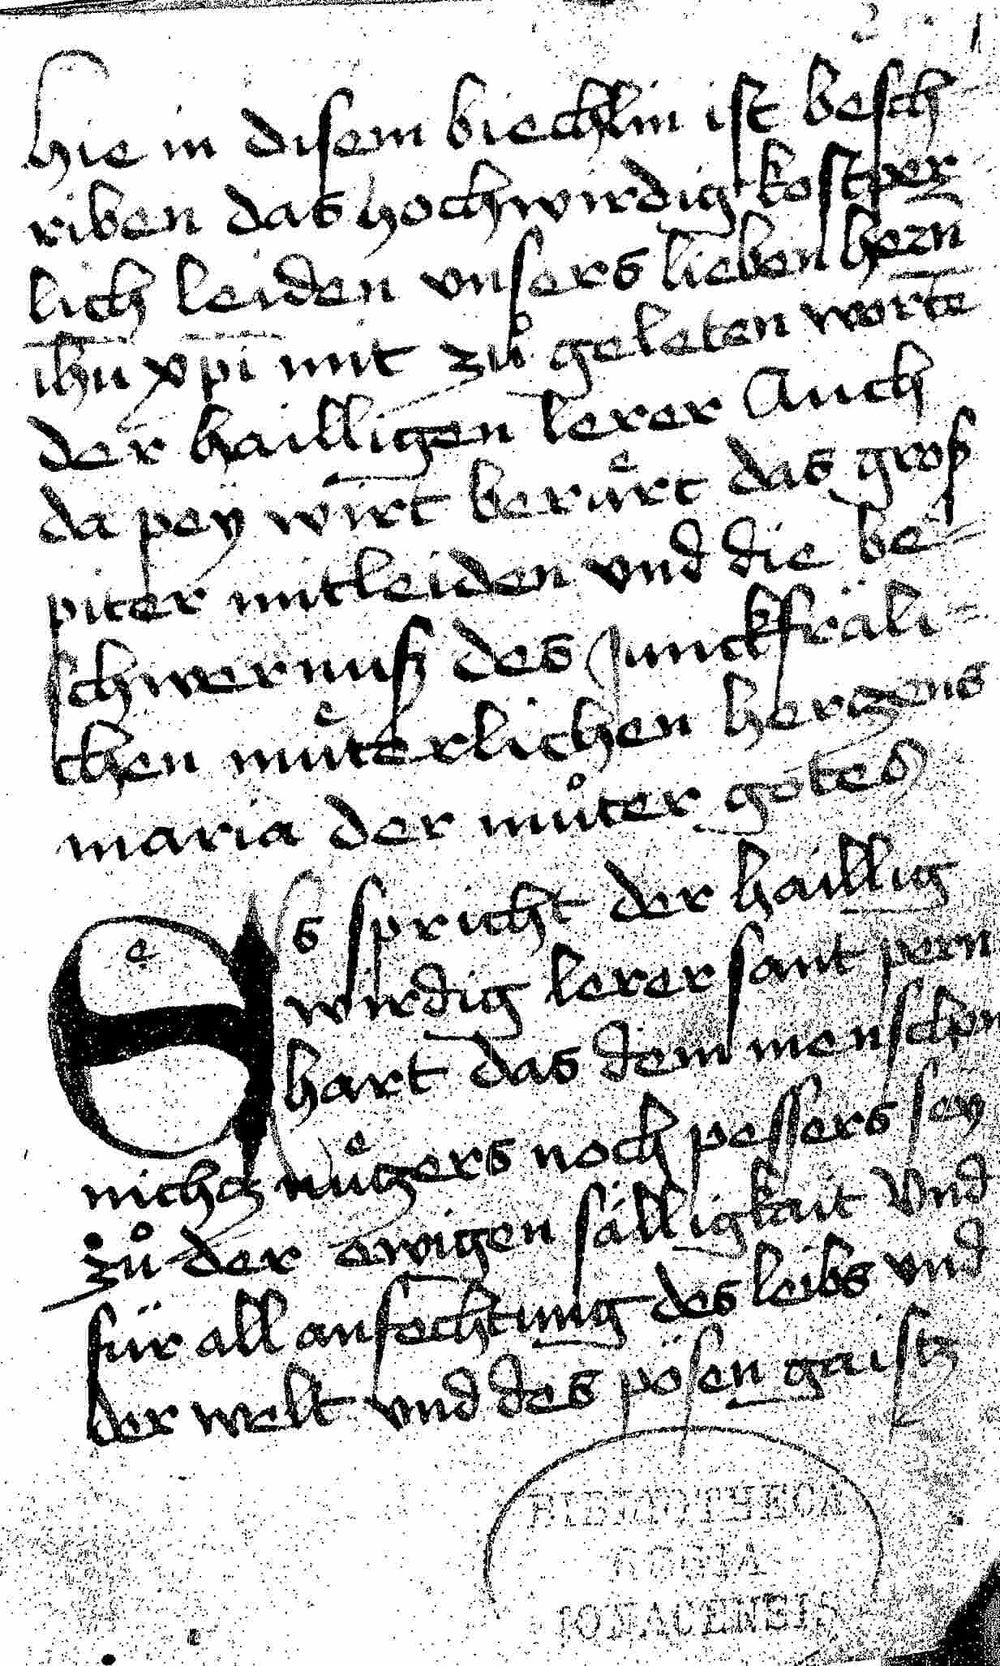 1
hie in disem biechlin ist besch
riben das hochwirdig kostper
lich leiden vnsers lieben herñ
ih̄u xp̄i mit zů geleten wort̄e
der hailligen lerer Auch
da pey wirt berůͤrt das groß
piter mitleiden vnd die be-
schwernuß des Junckfräli-
chen muͤterlichen herczens
maria der můter gotes
Es spricht der haillig
wirdig lerer sant pern
hart das dem menschen
nichcz nuͤczers noch pessers sey
zů der ewigen sälligkait Vnd
für all anfechtung des leibs vnd
der welt vnd des pösen gaistz
BIBLIOTHECA
REGIA
MONACENSIS